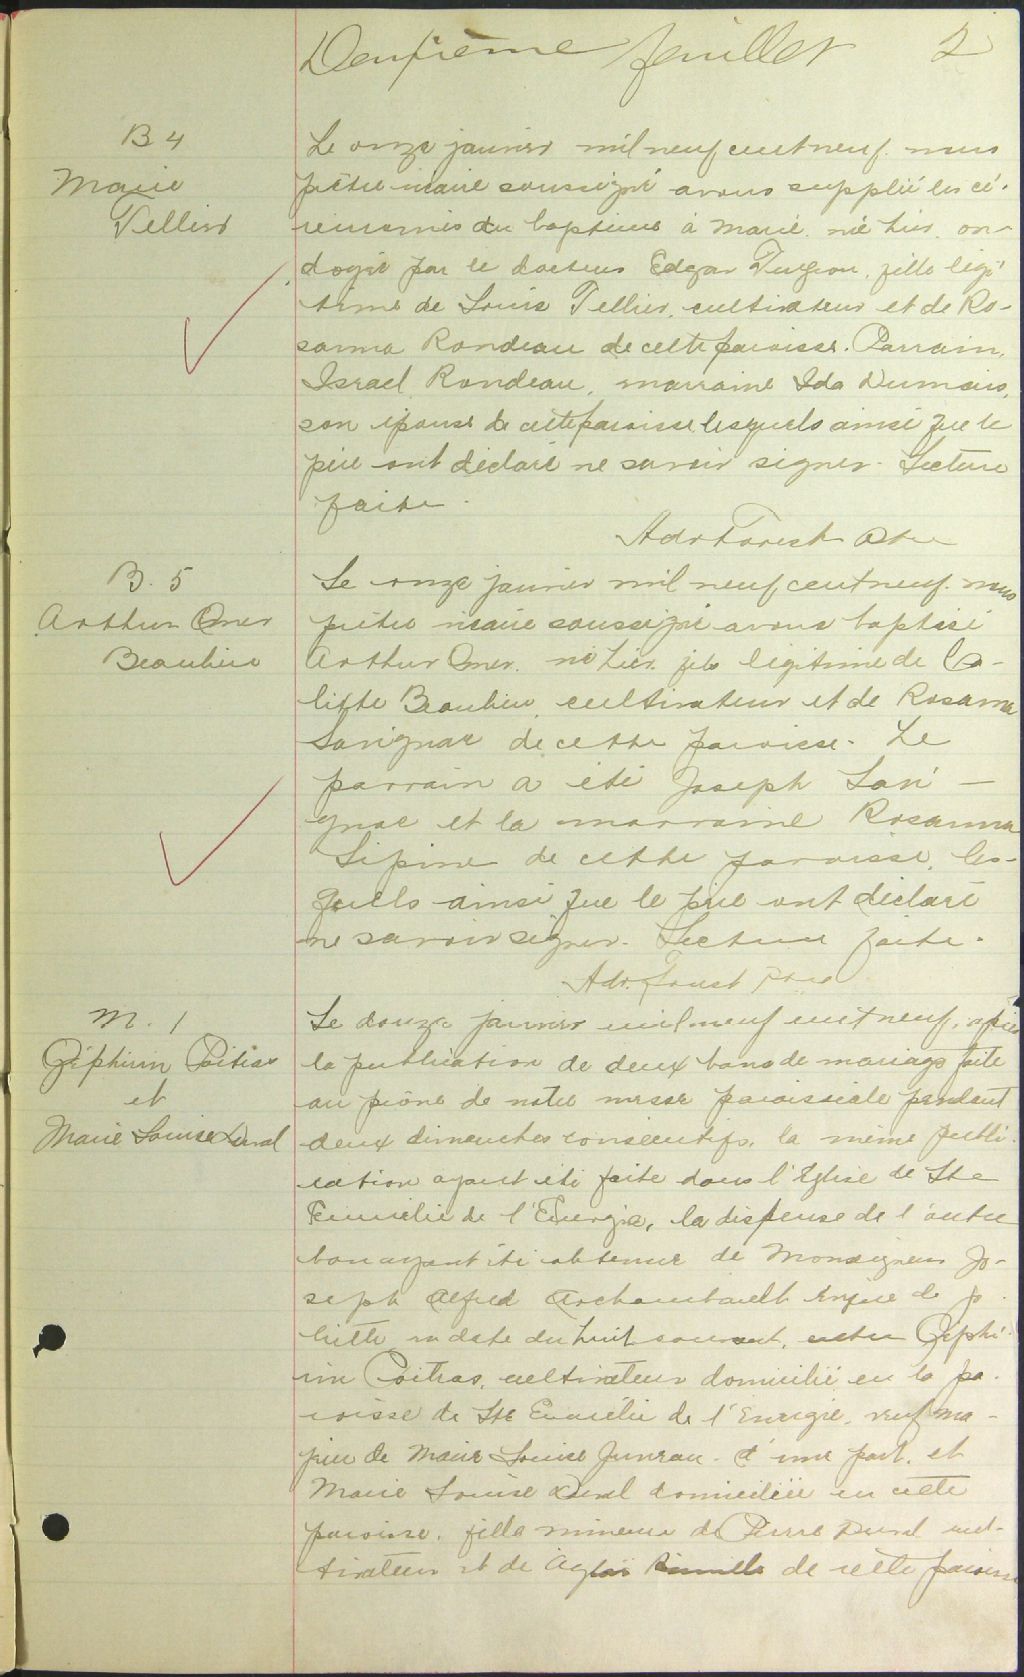 Deuxième feuillet 2
B 4
Marie
Tellier
Le onze janvier mil neuf cent neuf nous
prêtre vicaire soussigné avons supplié les cé-
rémonies du baptême à Marie née hier, on-
doyée par le docteur Edgar Turgeon, fille légi-
time de Louis Tellier, cultivateur et de Ro-
sanna Rondeau de cette paroisse. Parrain,
Israel Rondeau, marraine Ida Dumais,
son épouse de cette paroisse lesquels ainsi que le
père ont déclaré ne savoir signer. Lecture
faite.
Adr Forest Ptre
B. 5
Arthur Omer
Beaulieu
Le onze janvier mil neuf cent neuf nous
prêtre vicaire soussigné avons baptisé
Arthur Omer, né hier, fils légitime de Ca-
lixte Beaulieu, cultivateur et de Rosanna
Savignac de cette paroisse. Le
parrain a été Joseph Savi-
gnac et la marraine Rosanna
Lépine de cette paroisse, les-
quels ainsi que le père ont déclaré
ne savoir signer. Lecture faite.
Adr. Forest Ptre
M. 1
Zéphirin Poitras
et
Marie Louise Duval
Le douze janvier mil neuf cent neuf, après
la publication de deux bans de mariage faite
au prône de notre messe paroissiale pendant
deux dimanches consécutifs, la même publi-
cation ayant été faite dans l'Église de Ste
Emmélie de l'Énergie, la dispense de l'autre
ban ayant été obtenue de Monseigneur Jo-
seph Alfred Archambault évêque de Jo-
liette en date du huit courant, entre Zéphi-
rin Poitras, cultivateur domicilié en la pa-
roisse de Ste Emmélie de l'Énergie, veuf ma-
jeur de Marie Louise Juneau d'une part, et
Marie Louise Duval domiciliée en cette
paroisse, fille mineure de Pierre Duval cul-
tivateur et de Aglaé de cette paroisse